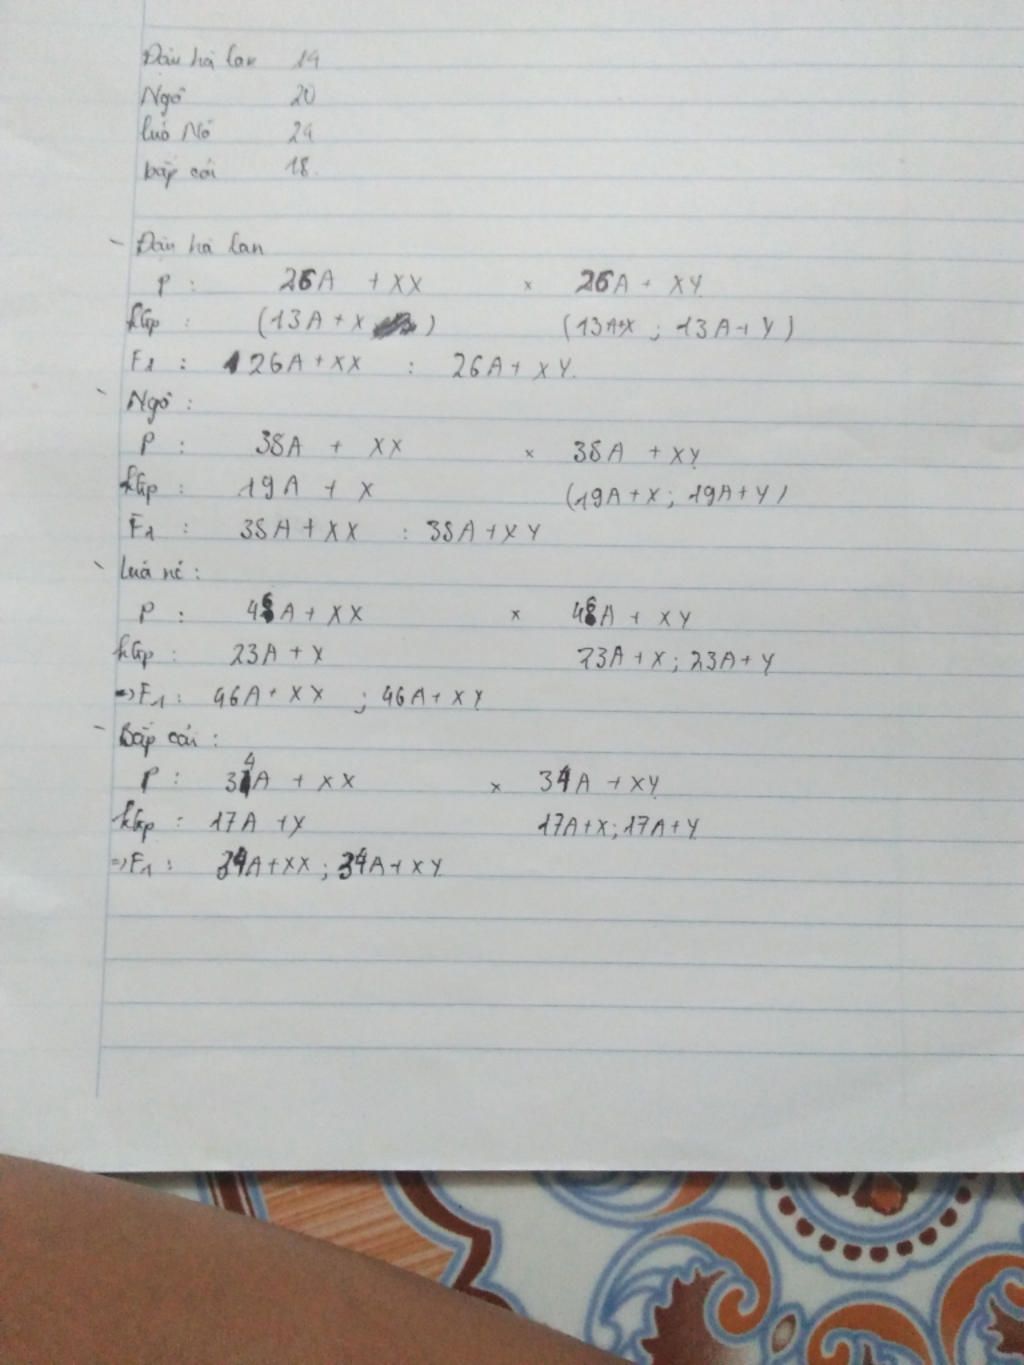 Đậu hà lan 14
Ngô 20
lúa Nó 24
bắp cải 18.
- Đậu hà lan
P : 26A + XX × 26A + XY
ktgp : (13A + X ) (13A+X ; 13A + Y)
F1 : 26A + XX : 26A + XY.
- Ngô :
P : 38A + XX × 38A + XY
ktgp : 19A + X (19A + X ; 19A + Y)
F1 : 38A + XX : 38A + XY
- Lúa nó :
P : 46A + XX × 46A + XY
ktgp : 23A + X 23A + X ; 23A + Y
=> F1 : 46A + XX ; 46A + XY
- Bắp cải :
P : 34A + XX × 34A + XY
ktgp : 17A + X 17A+X ; 17A + Y
=> F1 : 34A + XX ; 34A + XY